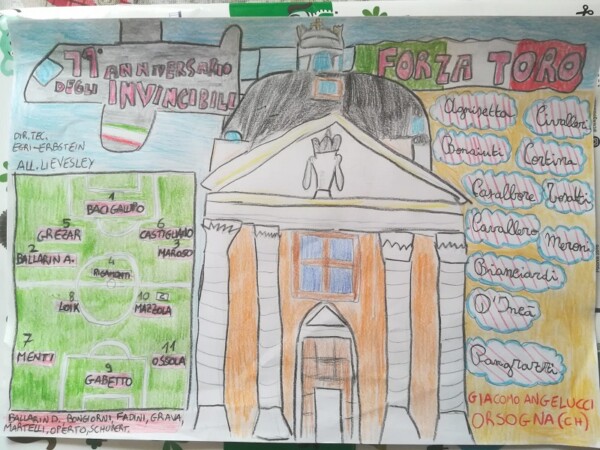 71° ANNIVERSARIO
DEGLI INVINCIBILI
FORZA TORO
DIR. TEC.
EGRI-ERBSTEIN
ALL. LIEVESLEY
1
BACIGALUPO
5
GREZAR
6
CASTIGLIANO
2
BALLARIN A.
3
MAROSO
4
RIGAMONTI
8
LOIK
10
MAZZOLA
7
MENTI
11
OSSOLA
9
GABETTO
BALLARIN D. BONGIORNI, FADINI, GRAVA,
MARTELLI, OPERTO, SCHUBERT.
Agnisetta
Civalleri
Bonaiuti
Cortina
Casalbore
Tosatti
Cavallero
Meroni
Biancardi
D'Incà
GIACOMO ANGELUCCI
ORSOGNA (CH)